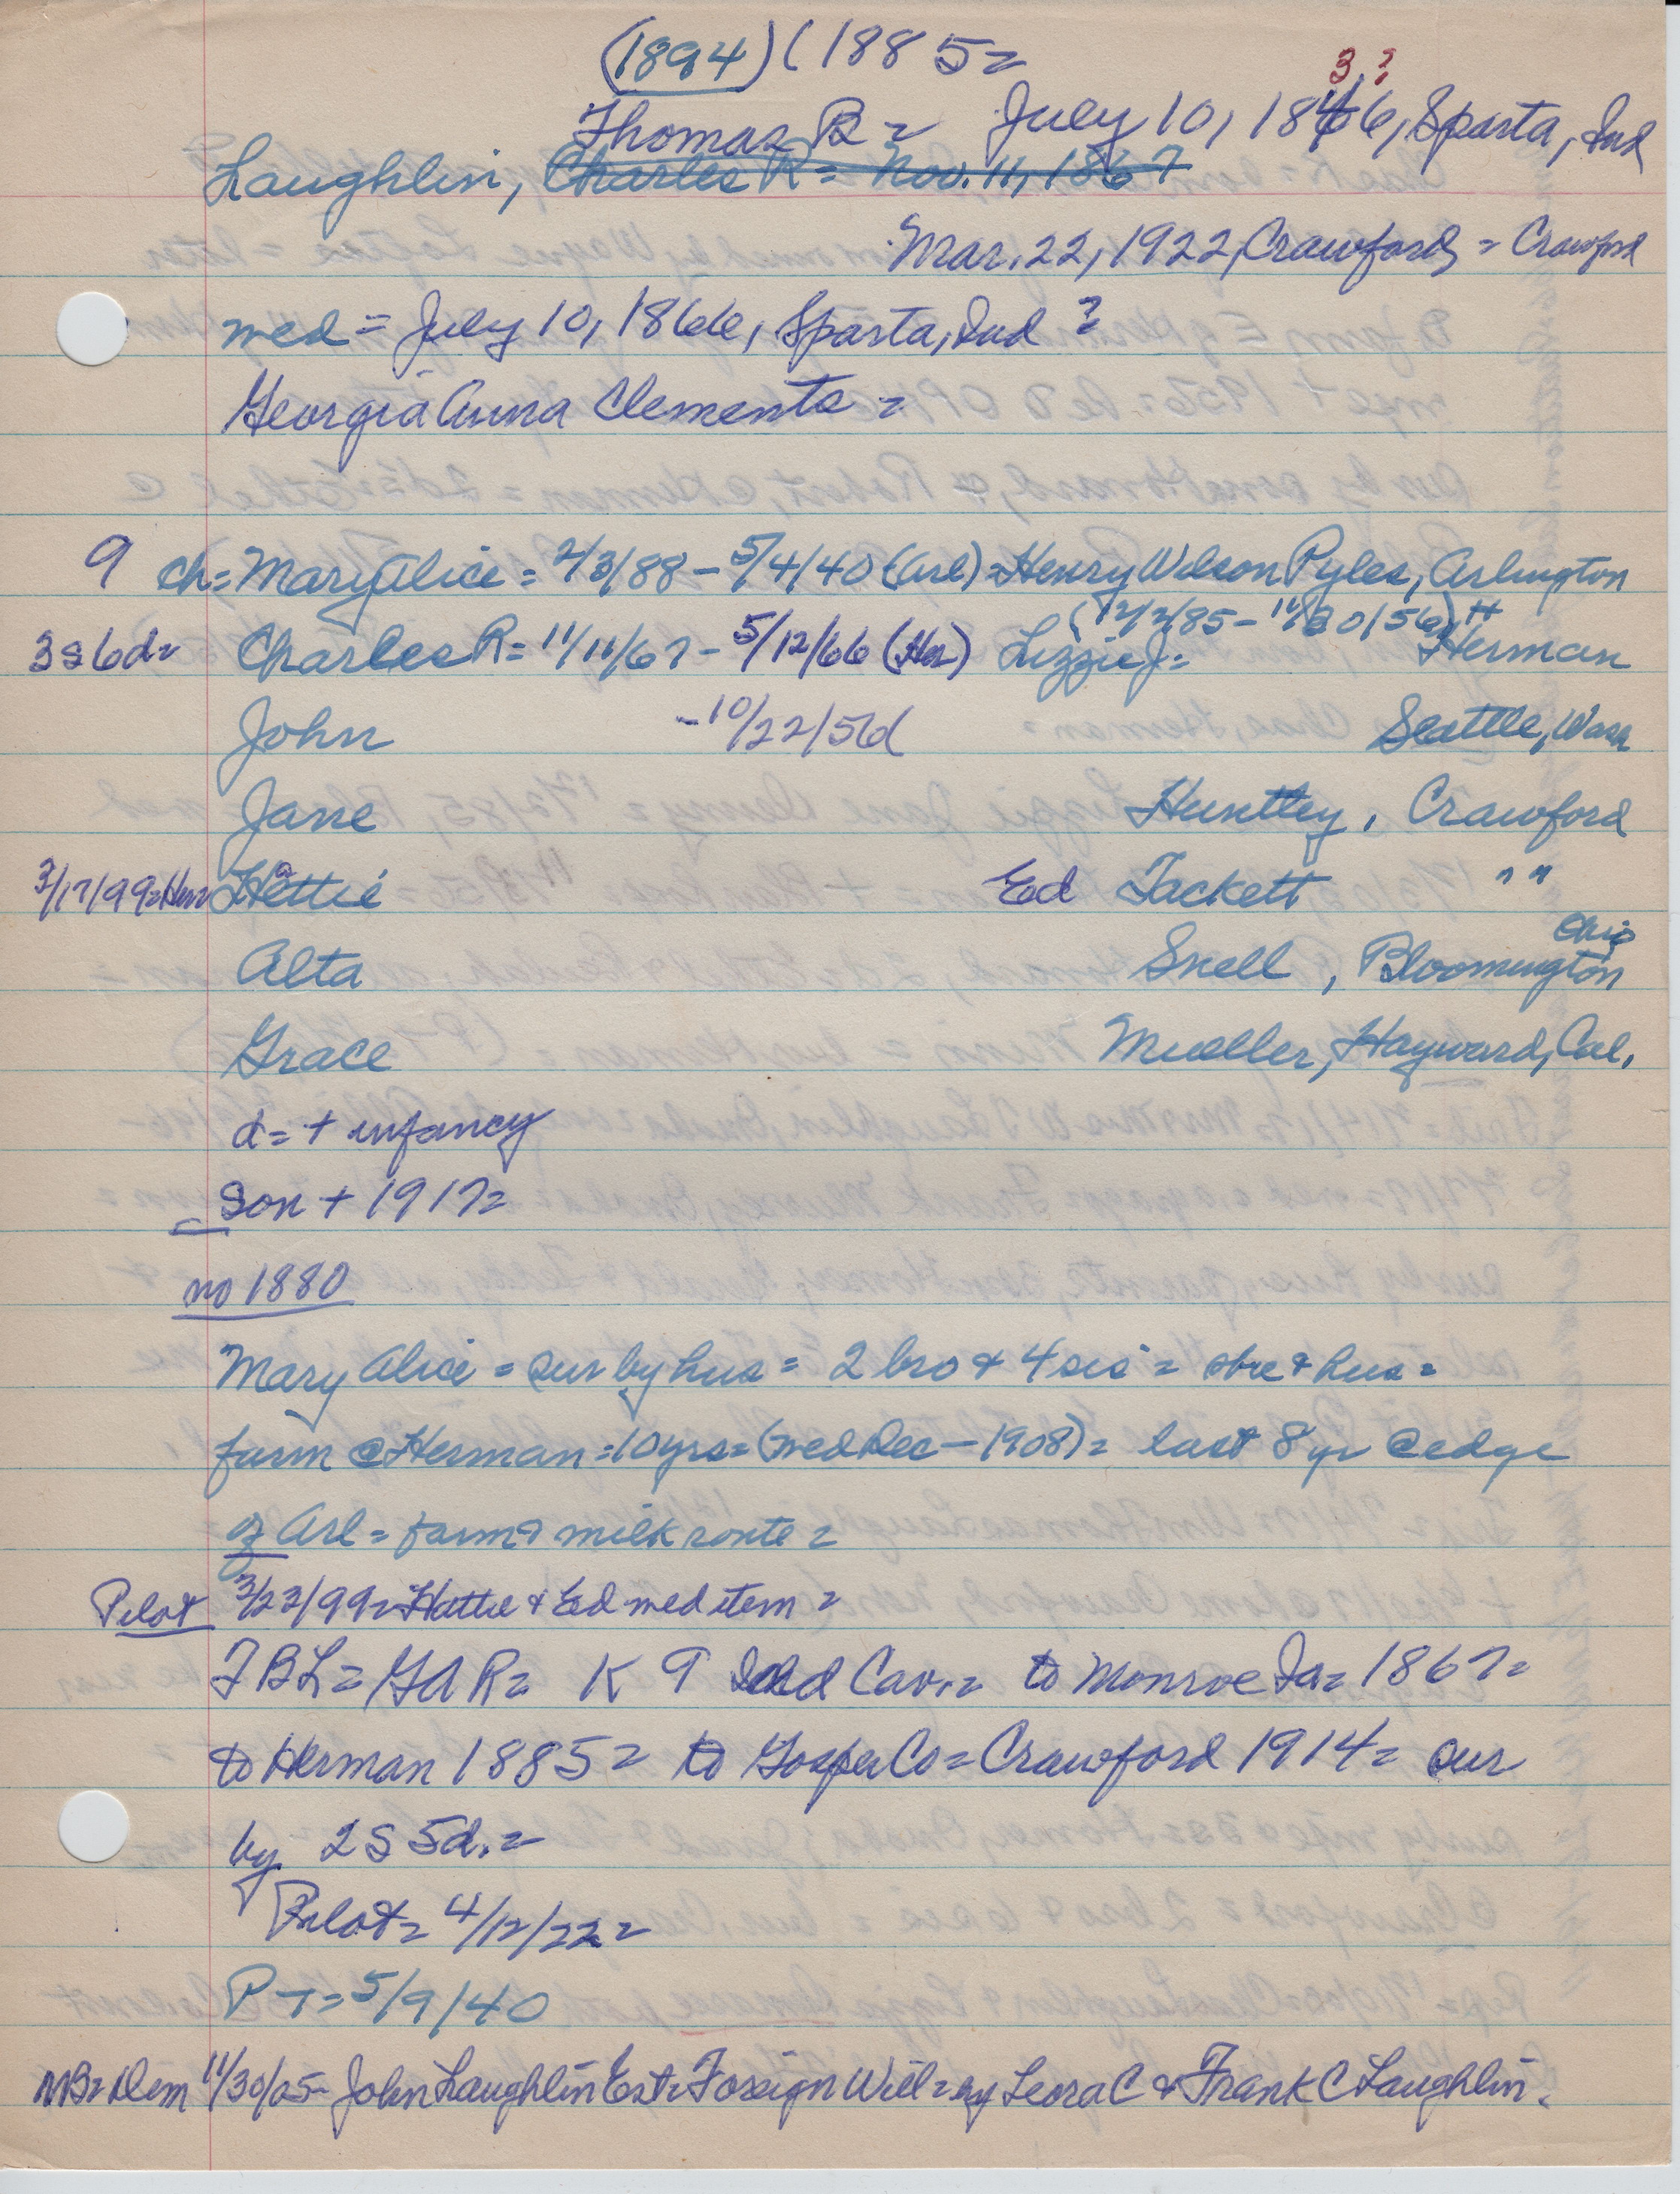 (1894) (1885=
3?
Thomas B = July 10, 1846, Sparta, Ind
Laughlin, Charles R = Nov. 11, 1867
Mar. 22, 1922, Crawford, = Crawford
med = July 10, 1866, Sparta, Ind ?
Georgia Anna Clements =
9 ch = Mary Alice = 2/3/88 - 5/4/40 (Arl) = Henry Wilson Pyles, Arlington
(12/2/85 - 11/30/56) H
3s 6d = Charles R = 11/11/67 - 5/12/66 (Her) Lizzie J = Herman
John - 10/22/56d Seattle, Wash
Jane Huntley, Crawford
3/17/99 = Her Hettie Ed Tackett " "
Ohio
Alta Snell, Bloomington
Grace Mueller, Hayward, Cal.
d = + infancy
Son + 1917 =
no 1880
Mary Alice = sur by hus = 2 bro + 4 sis = she & hus =
farm @ Herman = 10 yrs = (med Dec - 1908) = last 8 yr @ edge
of Arl = farm & milk route =
Pilot 3/23/99 = Hattie & Ed med item =
T B L = G A R = K 9 Ind Cav. = to Monroe Ia = 1867 =
to Herman 1885 = to Gosper Co = Crawford 1914 = sur
by 2 S 5d. =
Pilot = 4/12/22 =
P T = 5/9/40
NB = Dem 11/30/05 - John Laughlin Est = Foreign Will = by Leora C & Frank C Laughlin.